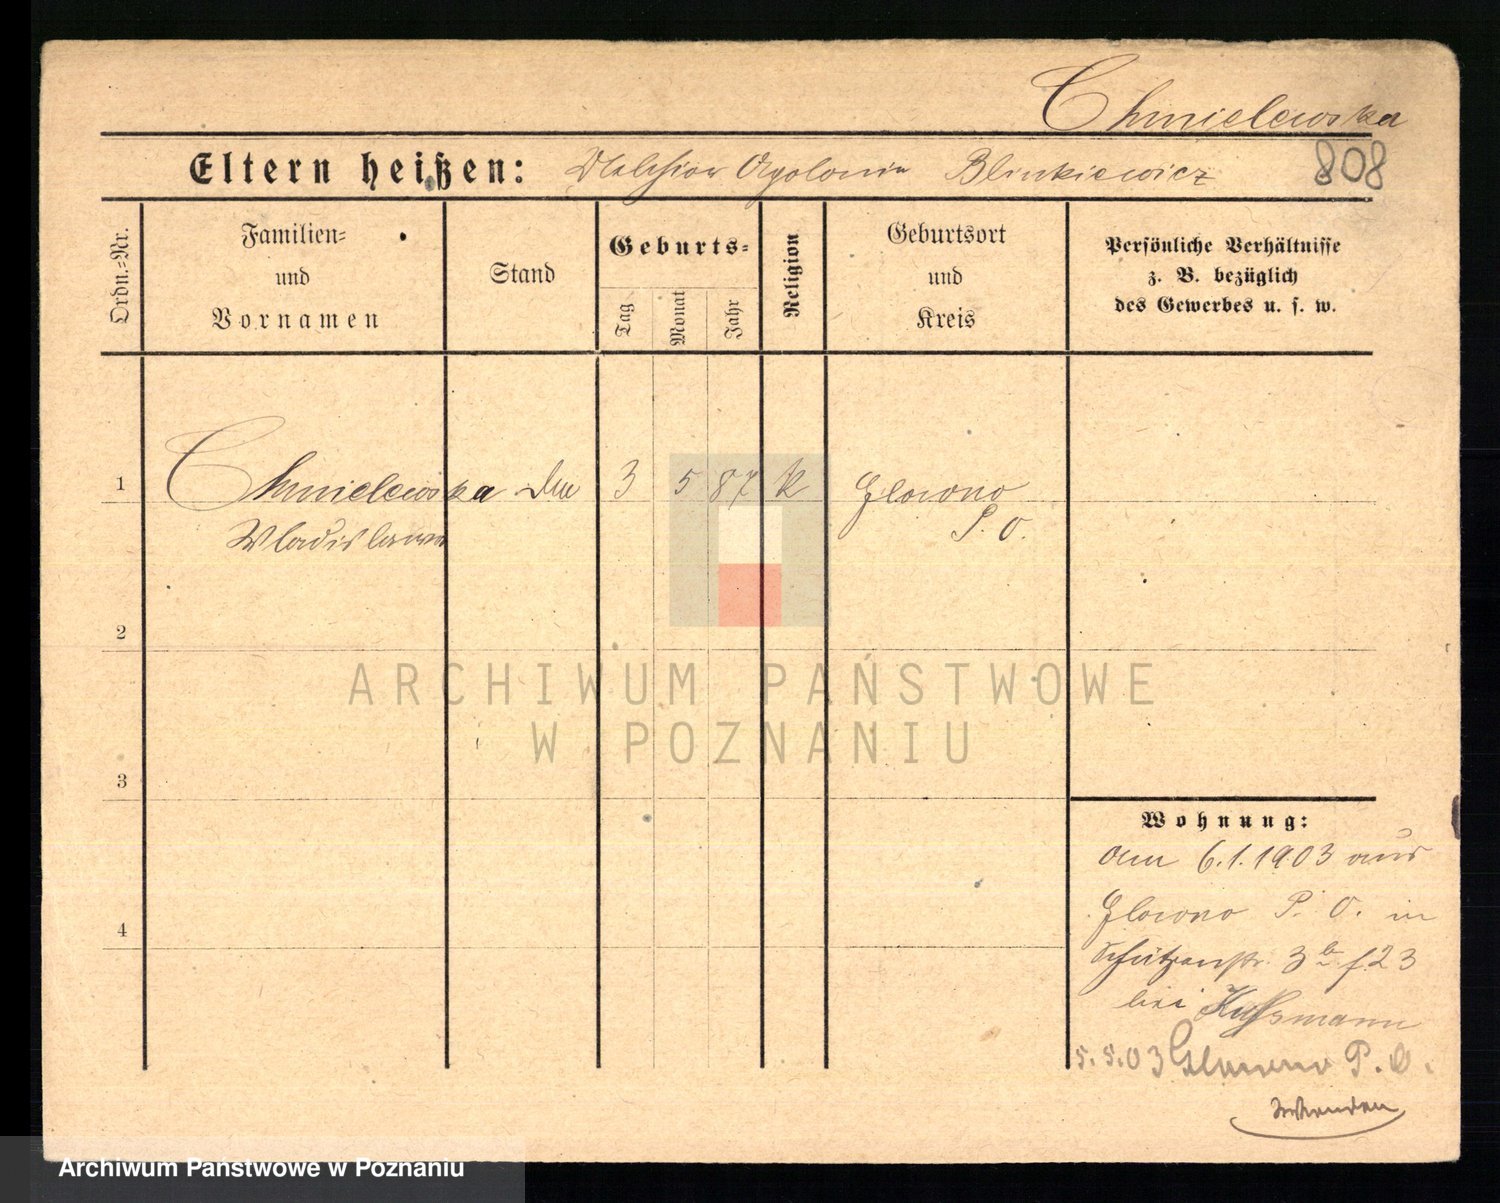 Chmielewska
Eltern heißen: Melchior Apolonia Blinkiewicz 808
Ordn.-Nr.
Familien-
und
Vornamen
Stand
Geburts-
Tag
Monat
Jahr
Religion
Geburtsort
und
Kreis
Persönliche Verhältnisse
z. B. bezüglich
des Gewerbes u. s. w.
1 Chmielewska 3 5 87 K Glowno
Wladislawa P. O.
2
3
4
Wohnung:
am 6.1.1903 aus
Glowno P. O. in
Schützenstr. 3 b f. 23
bei
5.5.03 Glowno P. O.
ARCHIWUM PAŃSTWOWE
W POZNANIU
Archiwum Państwowe w Poznaniu